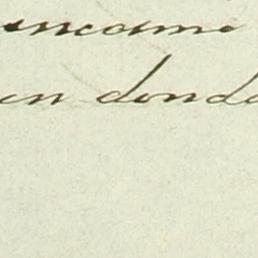 income
en donde